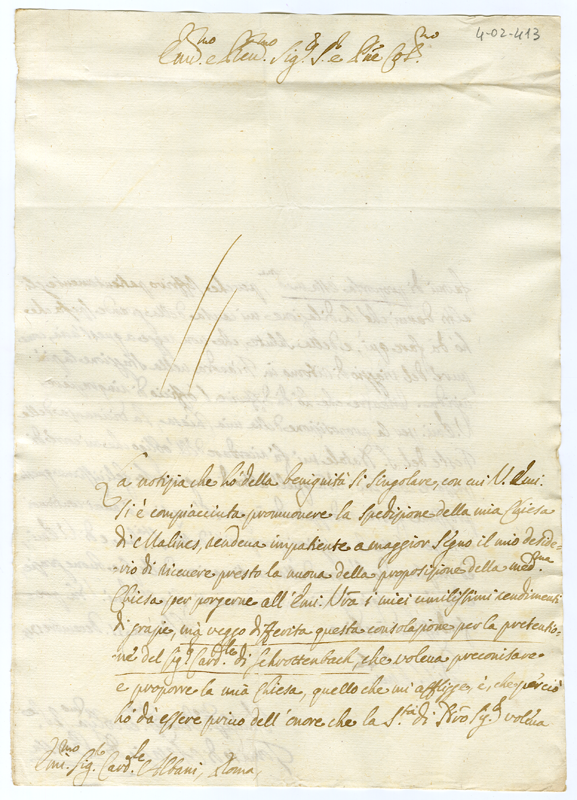 4-02-413
Em.mo e Rev.mo Sig.r S.r e P.ne Col.mo
La notizia che hò della benignità si singolare, con cui V. Emi.
si è compiacciuta promuovere la spedizione della mia Chiesa
di Malines, rendeva impatiente a maggior segno il mio deside-
rio di ricevere presto la nuova della proposizione della med.ma
Chiesa per porgerne all' Emi. Vra i miei umilissimi rendimenti
di grazie, mà veggo differita questa consolazione per la pretenzio-
ne del Sig.r Card.le di Schrottenbach, che voleva preconisare
e proporre la mia Chiesa, quello che mi afflige, è, che perciò
hò dà essere privo dell' onore che la S.tà di Nro Sig.re voleva
Emi.mo Sig.r Card.le Albani, Roma,